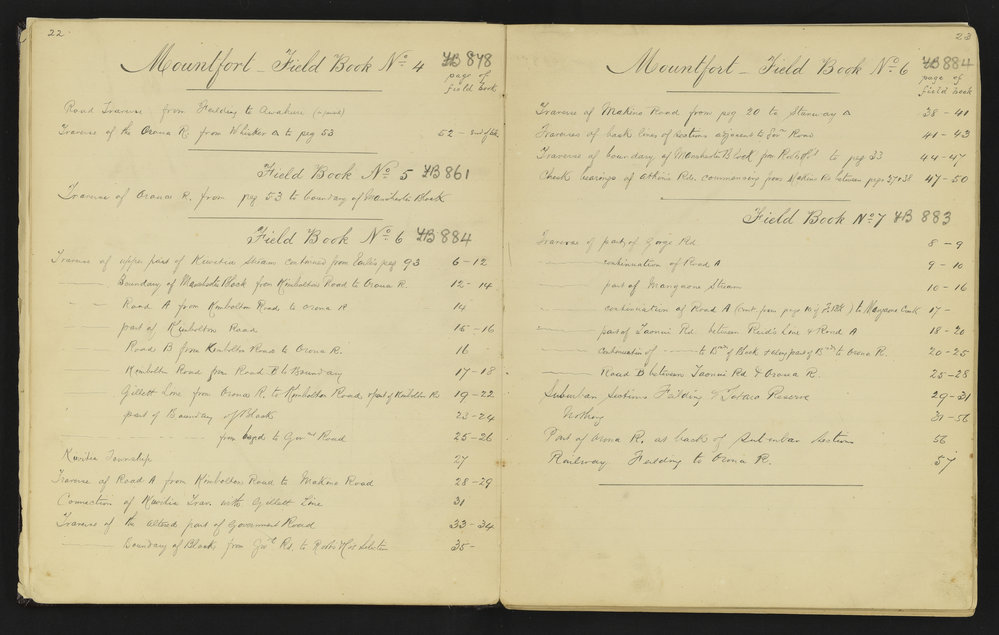 22
Mountfort - Field Book No 4 FB 878
page of
field book
Road Traverse from Feilding to Awahuri
Traverse of the Oroua R. from Whisker △ to peg 53 52 - end of
Field Book No 5 FB 861
Traverse of Oroua R. from peg 53 to boundary of Manchester Block
Field Book No 6 FB 884
Traverse of upper part of Kiwitea Stream continued from peg 93 6-12
Boundary of Manchester Block from Kimbolton Road to Oroua R. 12-14
Road A from Kimbolton Road to Oroua R 14
part of Kimbolton Road 15-16
Road B from Kimbolton Road to Oroua R. 16
Kimbolton Road from Road B to Boundary 17-18
Gillett Line from Oroua R. to Kimbolton Road & part of Kimbolton Rd 19-22
part of Boundary of Block 23-24
from to Govmt Road 25-26
Kiwitea Township 27
Traverse of Road A from Kimbolton Road to Makino Road 28-29
Connection of Kiwitea Trav. with Gillett Line 31
Traverse of the altered part of Government Road 33-34
Boundary of Block from Govt Rd. to 35-
23
Mountfort - Field Book No 6 FB 884
page of
field book
Traverse of Makino Road from peg 20 to Stanway △ 38-41
Traverses of back lines of sections adjacent to Govt Road 41-43
Traverse of boundary of Manchester Block from to peg 33 44-47
Check bearings of Rd. commencing from Makino Rd between pegs 37 & 38 47-50
Field Book No 7 FB 883
Traverse of part of Gorge Rd 8-9
continuation of Road A 9-10
part of Mangaone Stream 10-16
continuation of Road A (cont from page 10 of ) to Mangaone Creek 17-
part of Taonui Rd. between Reid's Line & Road A 18-20
continuation of to of Block & along part of to Oroua R. 20-25
Road B between Taonui Rd & Oroua R. 25-28
Suburban Sections Feilding & Reserve 29-31
Nothing 31-56
Part of Oroua R. at back of Suburban Sections 56
Railway Feilding to Oroua R. 57